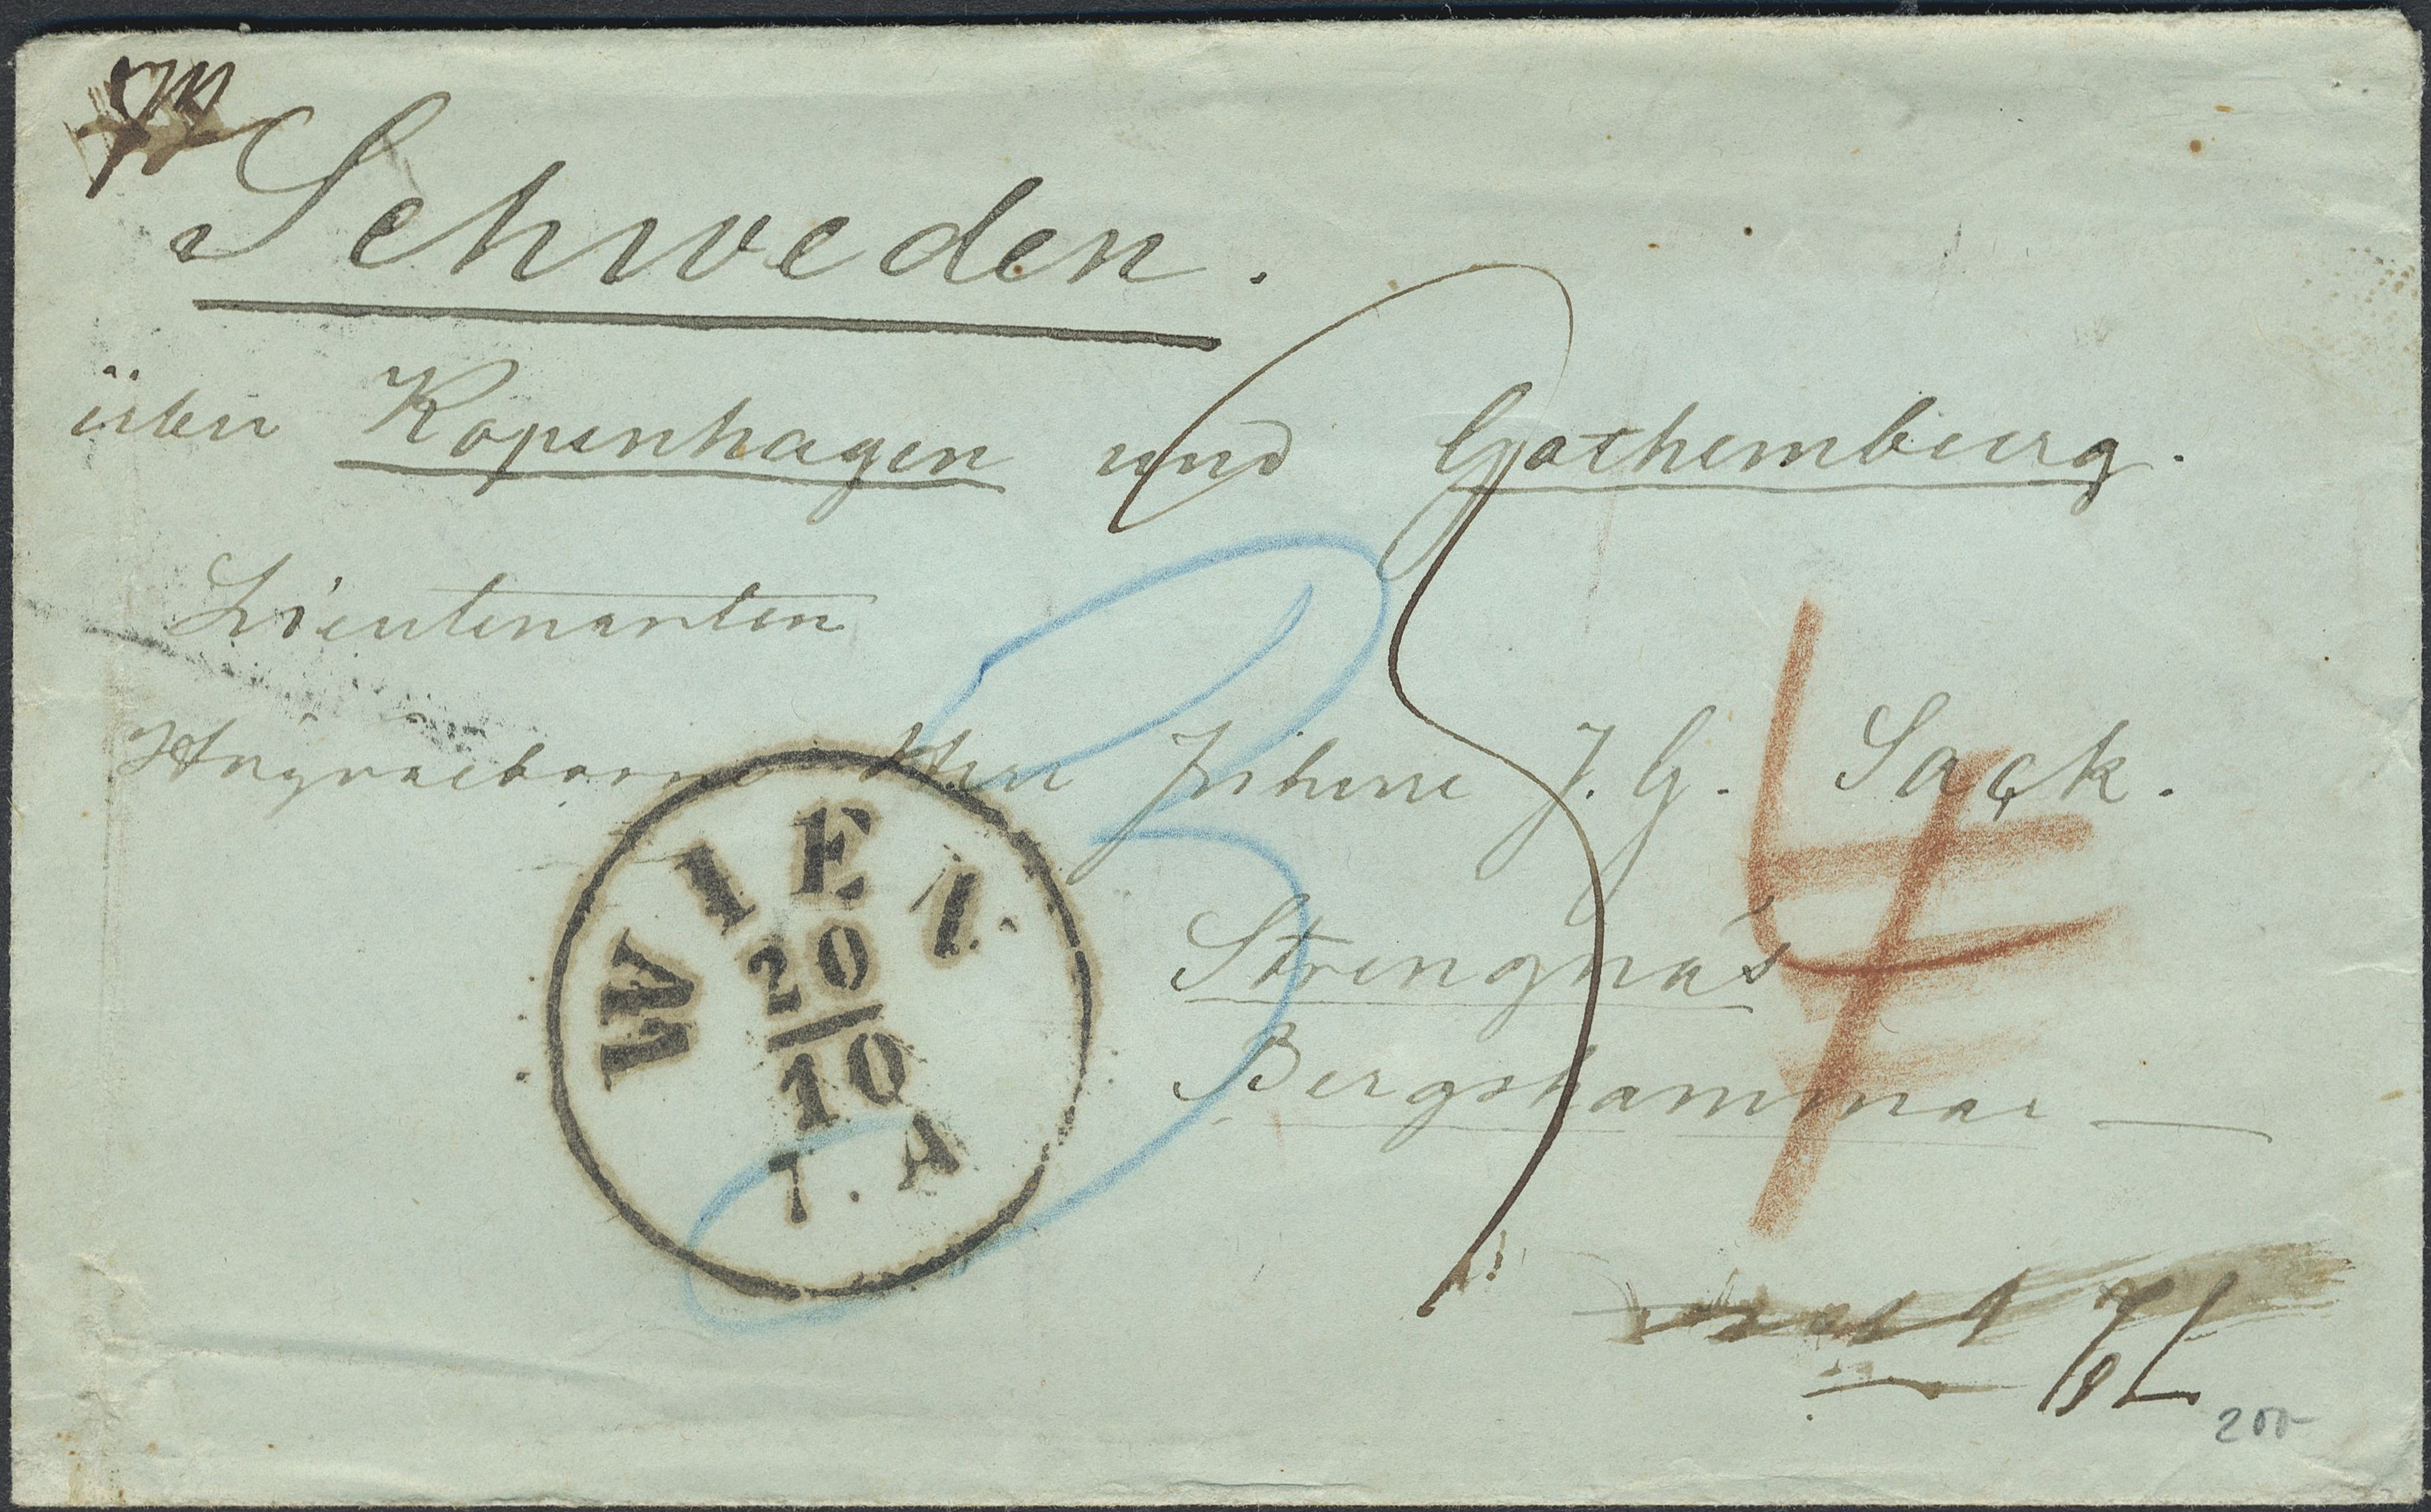 Schweden.
über Kopenhagen und Gothemburg.
Lieutenanten
Herr J. G. Sack.
Strengnäs
Bergshammar
WIEN
20
10
7. A
3
200